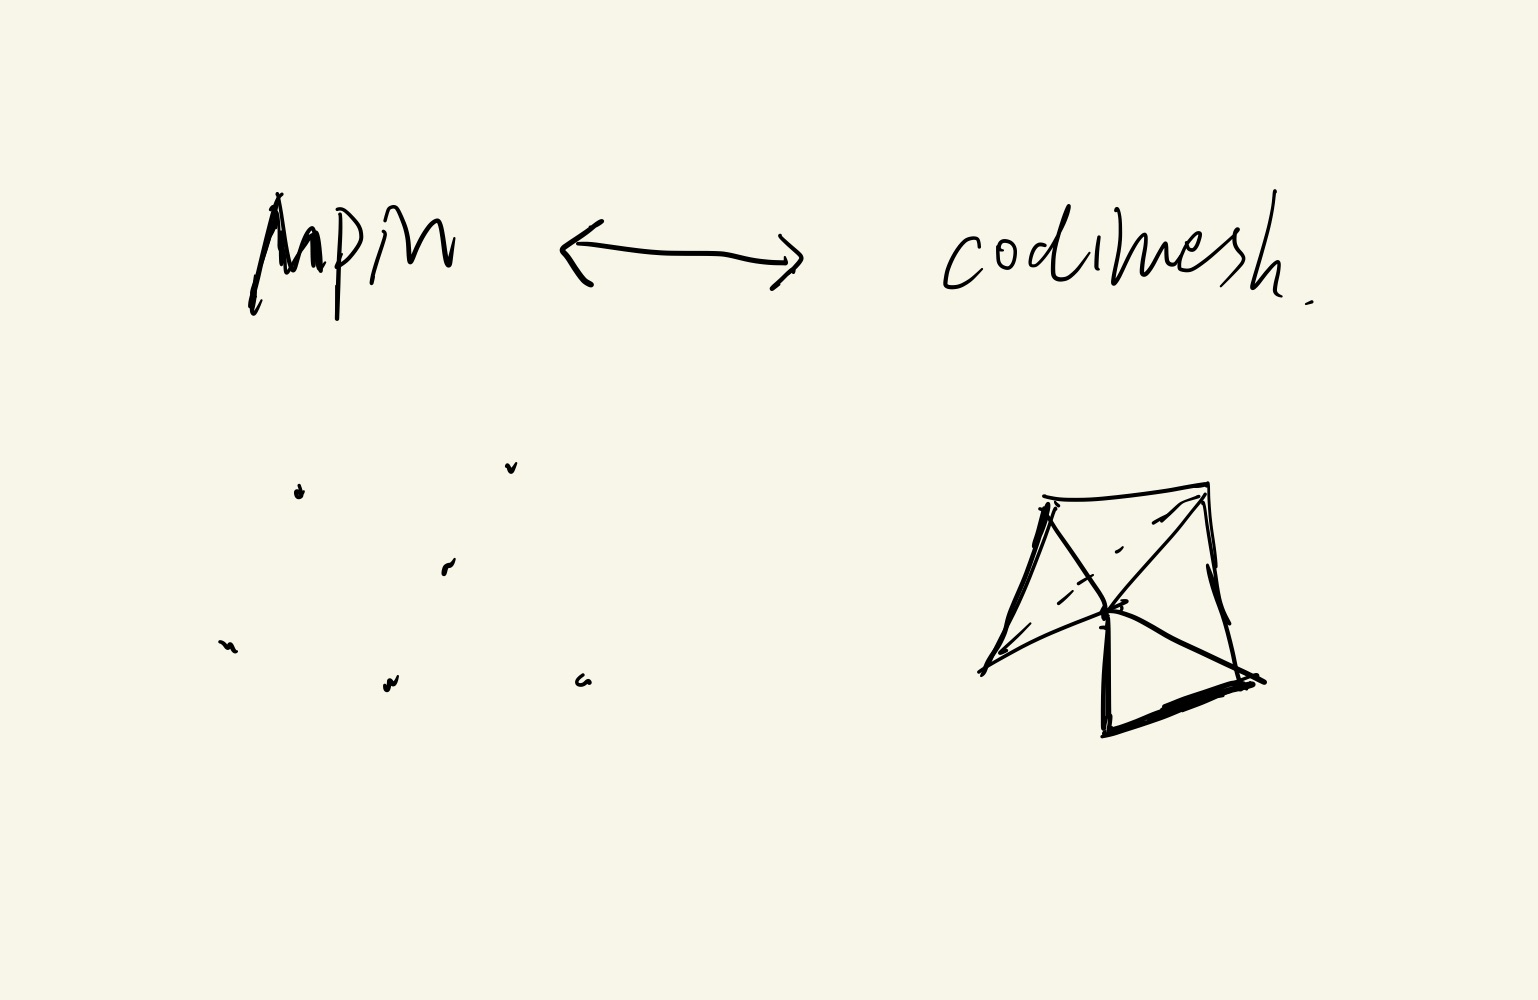 mpm ↔ codimesh.